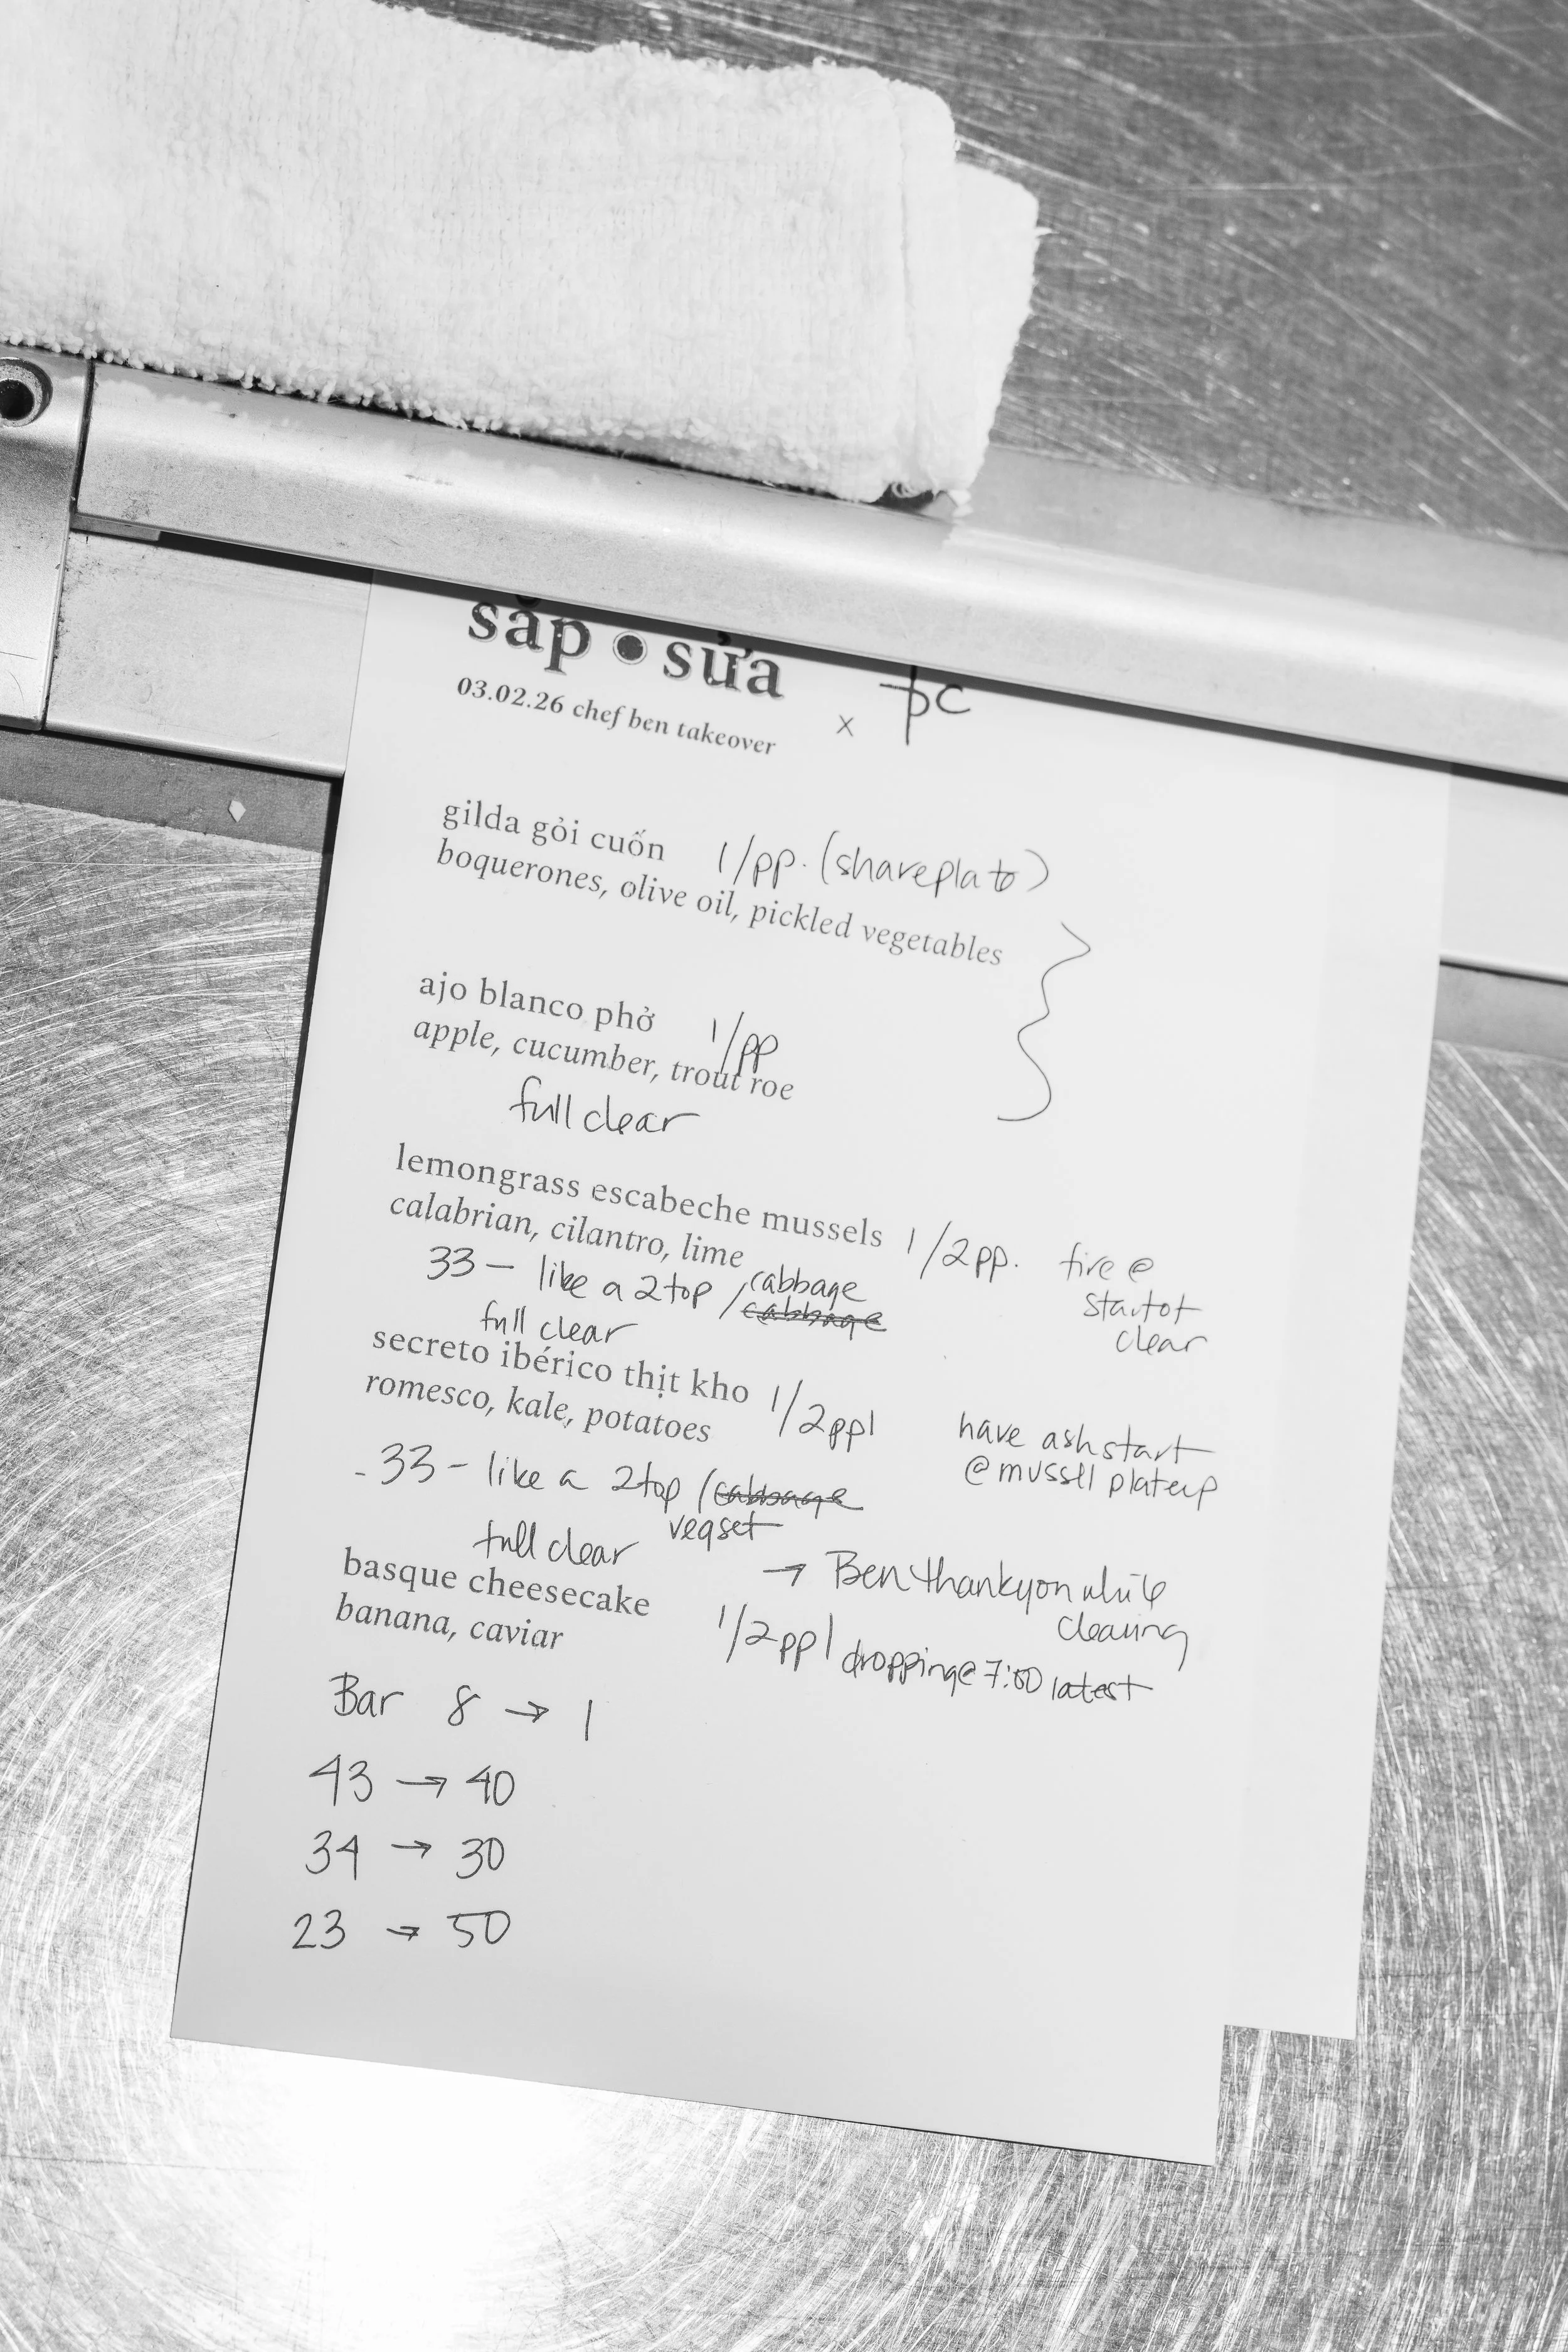 sắp • sửa
03.02.26 chef ben takeover x
gilda gỏi cuốn 1/pp. (shareplato)
boquerones, olive oil, pickled vegetables
ajo blanco phở 1/pp
apple, cucumber, trout roe
full clear
lemongrass escabeche mussels 1/2pp. fire @
calabrian, cilantro, lime start of
33 - like a 2top / cabbage clear
full clear
secreto ibérico thịt kho 1/2ppl have ash start
romesco, kale, potatoes @ mussel plateup
- 33 - like a 2top /
vegset
full clear → Ben thankyou while
basque cheesecake clearing
banana, caviar 1/2ppl dropping@ 7:00 latest
Bar 8 → 1
43 → 40
34 → 30
23 → 50